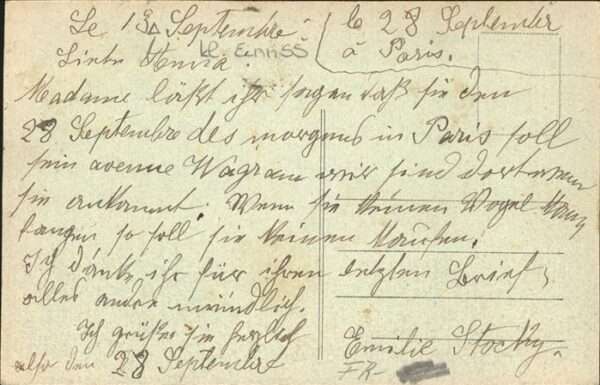 Le 18 Septembre
le 28 Septembre
à Paris.
Liebe
Madame läßt ihr sagen daß sie den
28 Septembre des morgens in Paris soll
sein avenue Wagram wir sind dort wenn
sie ankommt. Wenn sie keinen Vogel kann
fangen so soll sie keinen kaufen.
Ich danke ihr für ihren letzten Brief,
alles andre mündlich.
Ich grüße sie herzlich
also den 28 Septembre
Emilie
FR-